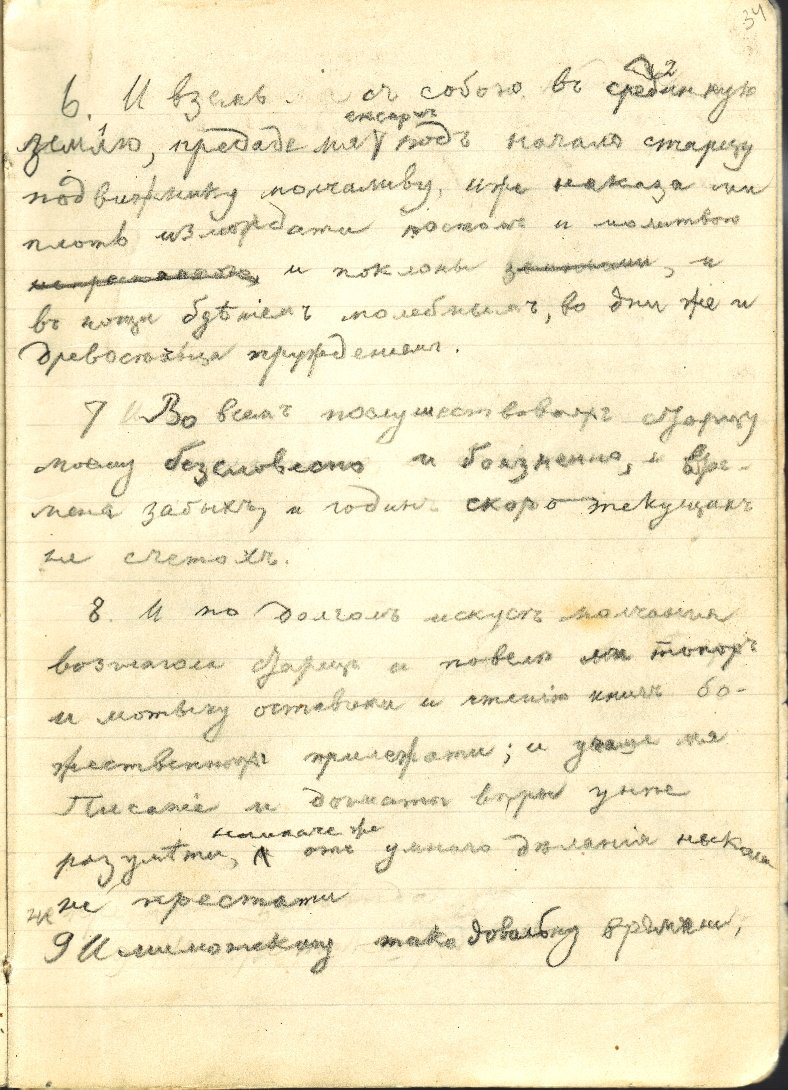 34
6. И вземъ съ собою въ срединную
землю, предаде мя ексархъ подъ началъ старцу
подвижнику молчаливу, иже наказа ми
плоть измождати постомъ и молитвою
и поклоны, и
въ нощи бдѣніемъ молебнымъ, во дни же и
древосѣчца труждениемъ.
7 Во всемъ послушествовахъ старцу
моему безсловесно и боязненно, и вре-
мена забыхъ, и годинъ скоро текущихъ
не счетохъ.
8. И по долгомъ искусѣ молчания
возглагола старецъ и повелѣ ми топоръ
и мотыку оставити и чтенію книгъ бо-
жественныхъ прилежати; и учаше мя
Писаніе и догматы вѣры унѣе
разумѣти, наипаче же отъ умнаго дѣланія николи
же не престати
9 И мимотекшу тако довольну времени,